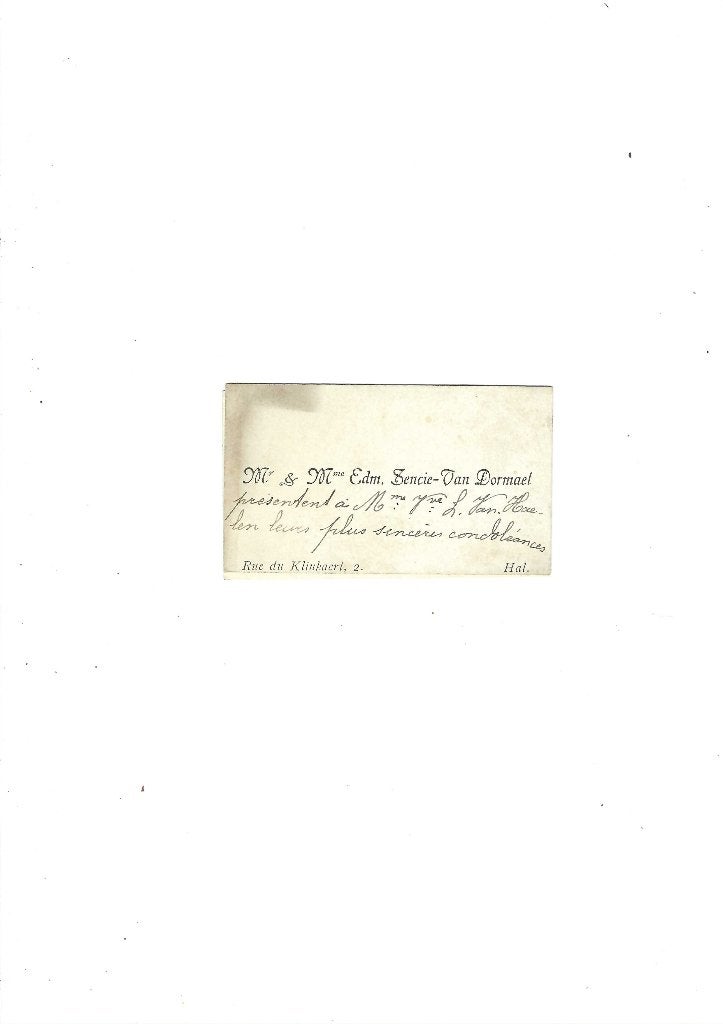 Mr. & Mme Edm. Sencie-Van Dormael
présentent à Mme Vve L. Van Hae-
len leurs plus sincères condoléances
Rue du Klinkaert, 2. Hal.